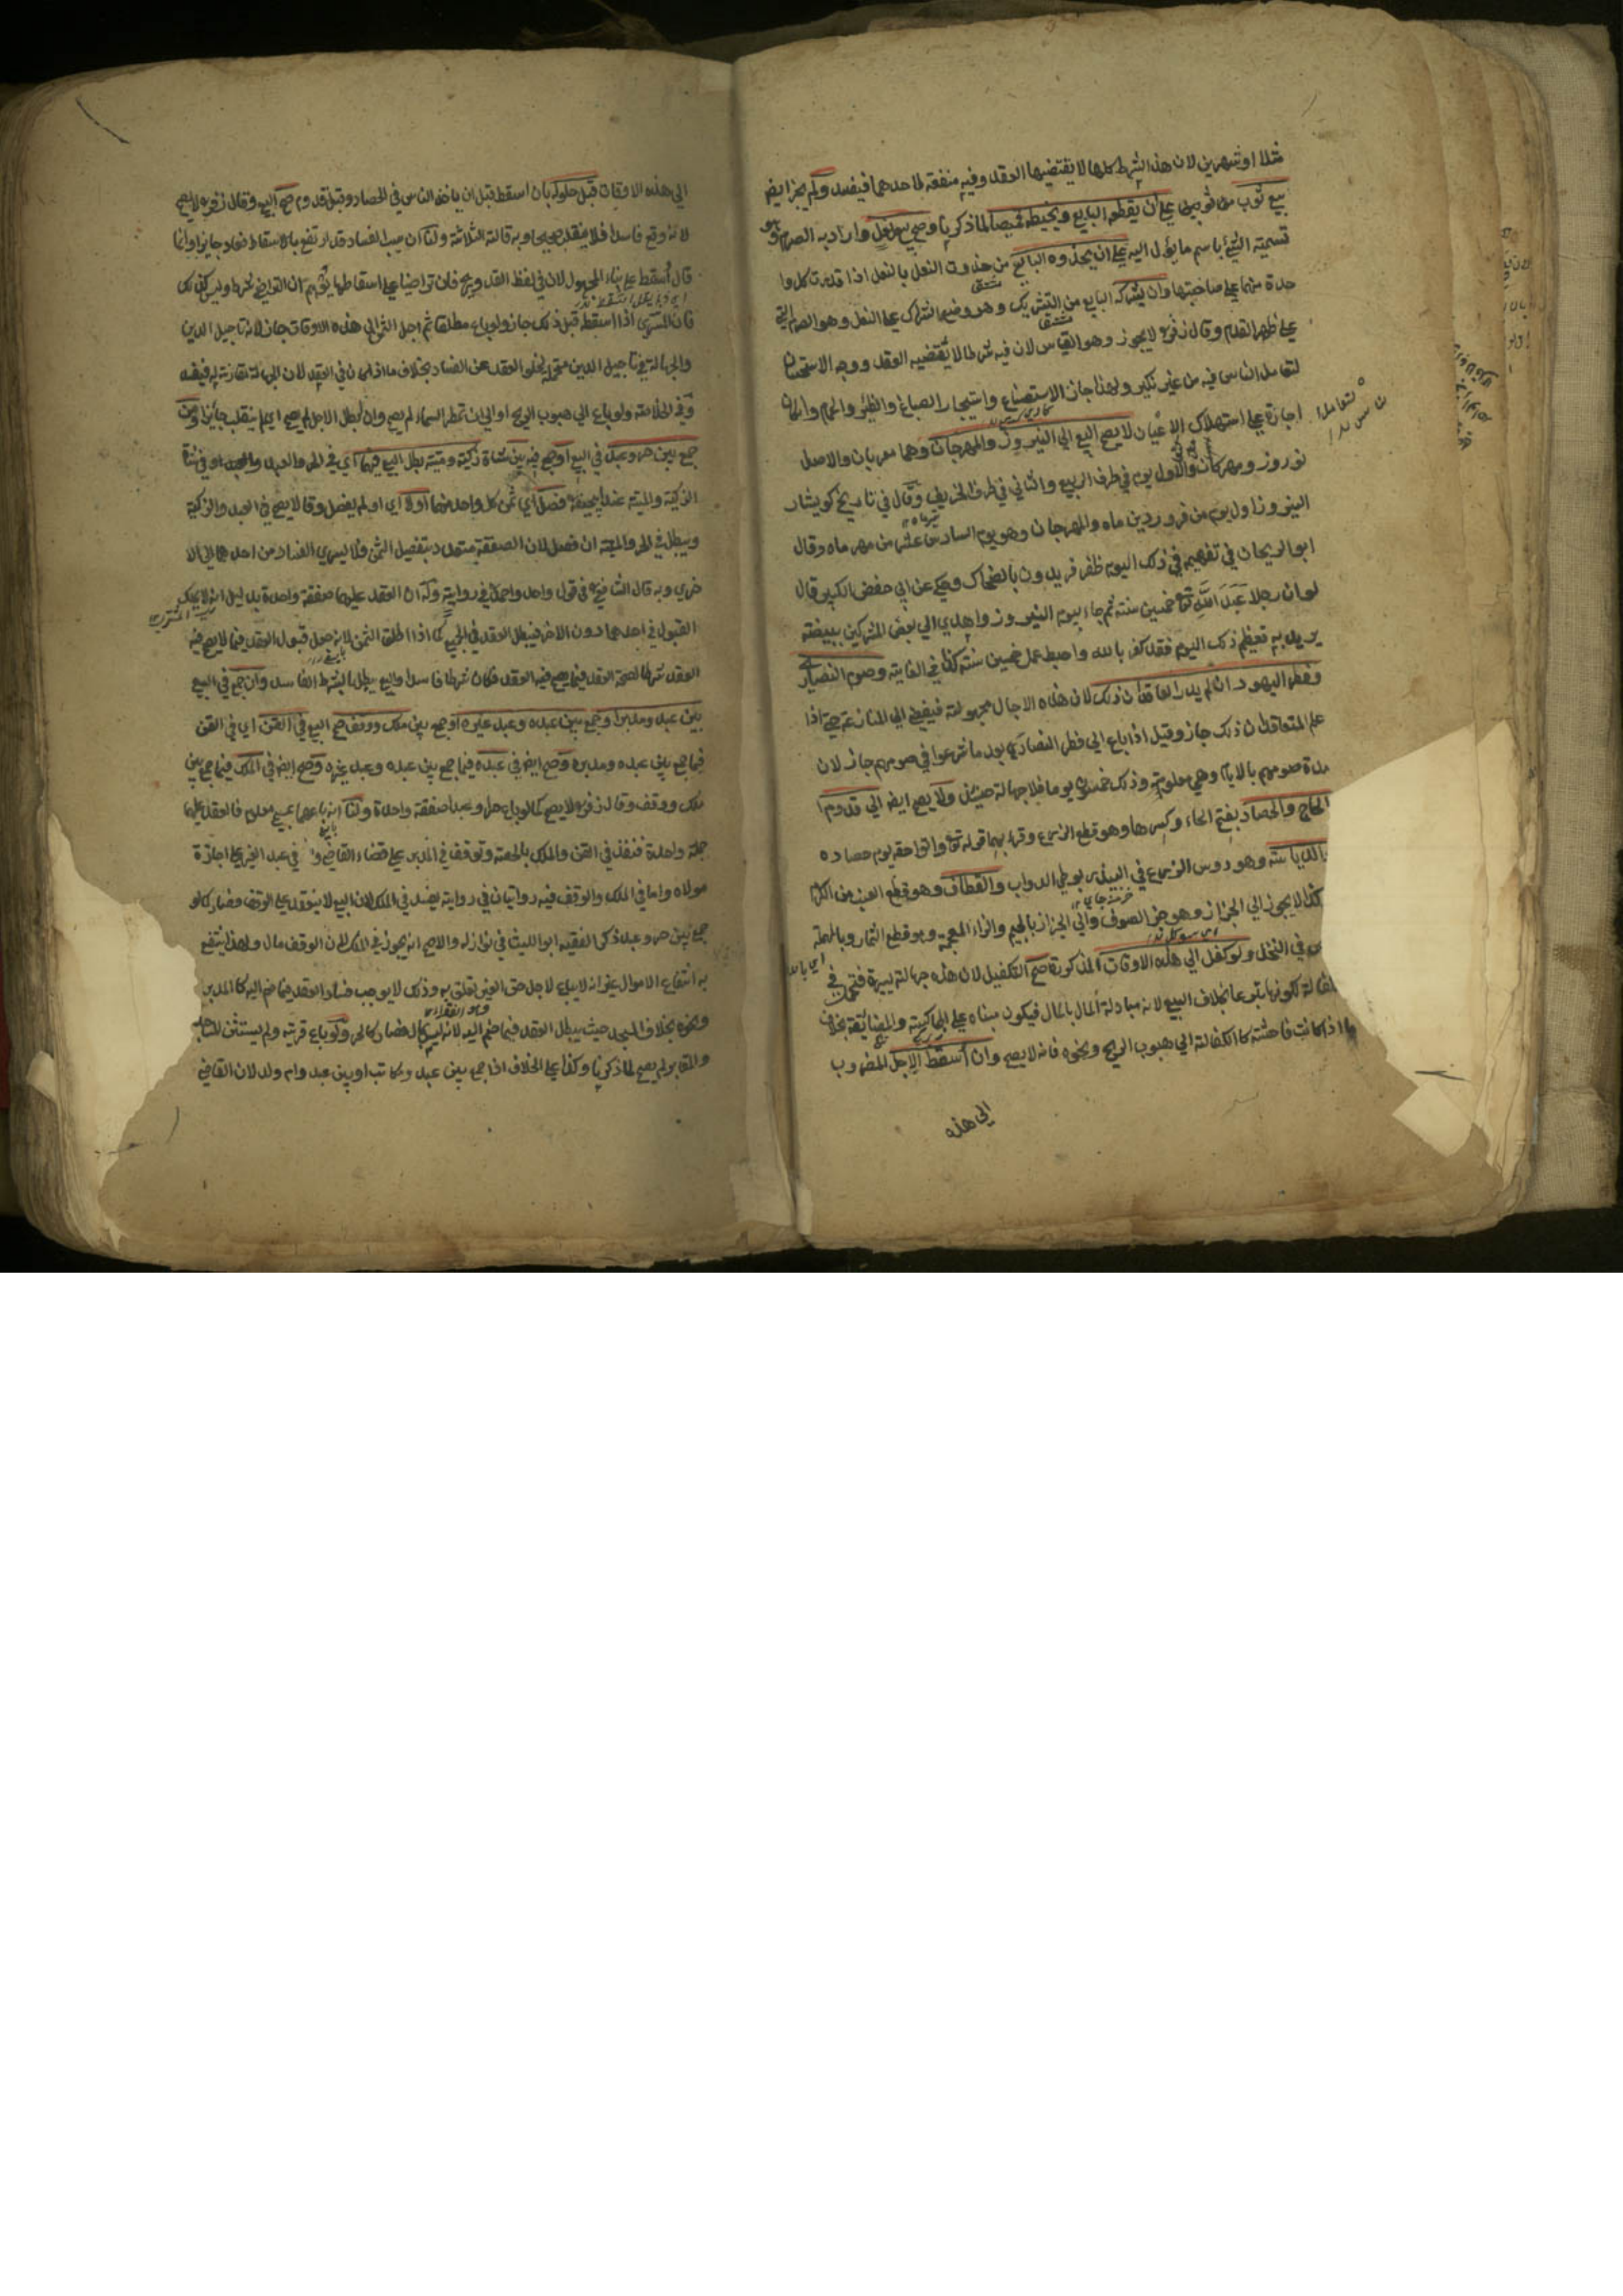 مثلا او شهرين لان هذه الشروط كلها لا يقتضيها العقد وفيه منفعة لاحدهما فيفسد ولم يجز ايضا
بيع ثوب من ثوبين على أن يقطعه البايع ويخيطه قميصا لما ذكرنا وصح بيع نعل واراد به الصرم وهو
تسمية الشيئ باسم ما يؤل اليه على ان يحذوه البايع من حذوت النعل بالنعل اذا قدرت كل وا
حدة منهما على صاحبتها وان يشركه البايع من التشريك وهو وضع الشراك على النعل وهو الصرم التي
على ظهر القدم وقال زفر لا يجوز وهو القياس لان فيه شرطا لا يقتضيه العقد ووجه الاستحسان
لتعامل الناس فيه من غير نكير ولهذا جاز الاستصناع واستيجار الصباغ والظئر والحمام وان كان
اجارة على استهلاك الاعيان لا يصح البيع الى النيروز والمهرجان وهما معربان والاصل
نوروز ومهركان والاول يوم في طرف الربيع والثاني في طرف الخريف وقال في تاريخ كويشار
النيروز اول يوم من فروردين ماه والمهرجان وهو يوم السادس عشر من مهر ماه وقال
ابو الريحان في تفهيمه في ذلك اليوم ظفر فريدون بالضحاك وحكي عن ابي حفص الكبير قال
لو ان رجلا عبد الله تع خمسين سنة ثم جاء يوم النيروز واهدي الي بعض المشركين ببيضة
يريد به تعظيم ذلك اليوم فقد كفر بالله واحبط عمل خمسين سنة كذا في الغاية وصوم النصارى
وفطر اليهود ان لم يدر العاقدان ذلك لان هذه الاجال مجهولة فيفضي الي المنازعة حتى اذا
علم المتعاقدان ذلك جاز وقيل اذا باع الي فطر النصارى بعد ما شرعوا في صومهم جاز لان
مدة صومهم بالايام وهي معلومة وذلك خمسون يوما فلا جهالة حينئذ ولا يصح ايضا الي قدوم
الحاج والحصاد بفتح الحاء وكسرها وهو قطع الزرع وقرئ بهما قوله تع واتوا حقه يوم حصاده
والدياسة وهو دوس الزرع في البيدر بوطي الدواب والقطاف وهو قطع العنب من الكرم
كذا لا يجوز الي الجزاز وهو جز الصوف والي الجزاز بالجيم والزاء المعجمة وهو قطع الثمار وبالمهملة
في النخل ولو كفل الي هذه الاوقات المذكورة صح التكفيل لان هذه جهالة يسيرة فتحمل في
الكفالة لكونها تبرعا بخلاف البيع لانه مبادلة المال بالمال فيكون مبناه على المماكسة والمضايقة بخلاف
ما اذا كانت فاحشة كالكفالة الي هبوب الريح ونحوه فانه لا يصح وان أسقط الاجل المضروب
الى هذه
الي هذه الاوقات قبل حلوله بان اسقط قبل ان ياخذ الناس في الحصاد وقبل قدوم صح البيع وقال زفر لا يصح
لانه وقع فاسدا فلا ينقلب صحيحا وبه قالت الثلاثة ولنا ان سبب الفساد قد ارتفع بالاسقاط فعاد جايزا وانما
قال أسقط على بناء المجهول
فان المشتري اذا اسقط قبل ذلك جاز ولو باع مطلقا ثم اجل الثمن الي هذه الاوقات جاز لانه تاجيل الدين
والجهالة في تاجيل الدين متحملة لخلو العقد عن الفساد بخلاف ما اذا كان في العقد لان الجهالة تقارنه فيفسد
وفي الخلاصة ولو باع الي هبوب الريح او الي ان تمطر السماء لم يصح وان ابطل الاجل لم يصح اي لم ينقلب جايزا ومن
جمع بين حر وعبد في البيع او جمع فيه بين شاة ذكية وميتة بطل البيع فيهما اي في الحر والعبد او في شاة
الذكية والميتة عند ابي حنيفة فصل اي ثمن كل واحد منهما أولا اي او لم يفصل وقالا يصح في العبد والذكية
ويبطل في الحر والميتة ان فصل لان الصفقة متعددة بتفصيل الثمن فلا يسري الفساد من احدهما الي الا
خري وبه قال الشافعي في قول واحد واحمد في رواية وله ان العقد عليهما صفقة واحدة بدليل انه لا يملك
القبول في احدهما دون الاخر فيبطل العقد في الجميع كما اذا اطلق الثمن لانه جعل قبول العقد فيما لا يصح فيه
العقد شرطا لصحة العقد فيما يصح فيه العقد فكان شرطا فاسدا والبيع يبطل بالشرط الفاسد وان جمع في البيع
بين عبد ومدبر او جمع بين عبده وعبد غيره أو جمع بين ملك ووقف صح البيع في القن اي في القن
فيما جمع بين عبده ومدبره وصح ايضا في عبده فيما جمع بين عبده وعبد غيره وصح ايضا في الملك فيما جمع بين
ملك ووقف وقال زفر لا يصح كما لو باع حرا وعبدا صفقة واحدة ولنا انه باعهما بثمن معلوم فالعقد عليهما
جملة واحدة فنفذ في القن والملك بالحصة وتوقف في المدبر على قضاء القاضي وفي عبد الغير على اجازة
مولاه واما في الملك والوقف فيه روايتان في رواية يفسد في الملك لان البيع لا ينعقد على الوقف فصار كما لو
جمع بين حر وعبد ذكر الفقيه ابو الليث في نوازله والاصح انه يجوز في الملك لان الوقف مال ولهذا ينتفع
به انتفاع الاموال غير انه لا يباع لاجل حق الغير تعلق به وذلك لا يوجب فساد العقد فيما ضم اليه كالمدبر
ونحوه بخلاف المسجد حيث يبطل العقد فيما ضم اليه لانه ليس بمال فصار كالحر ولو باع قرية ولم يستثن المساجد
والمقابر لم يصح لما ذكرنا وكذا على الخلاف اذا جمع بين عبد ومكاتب او بين عبد وام ولد لان القاضي